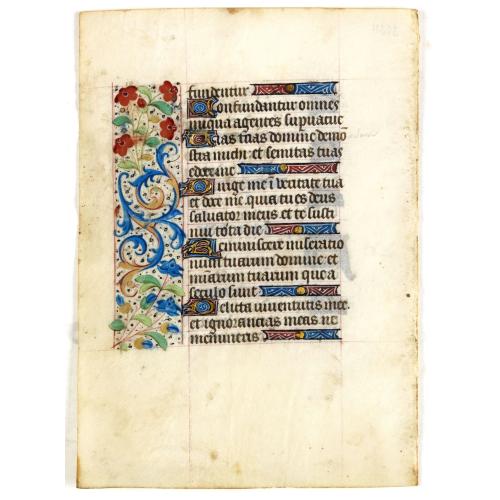 fundentur
Confundantur omnes
iniqua agentes supuacue
Uias tuas domine demō
stra michi: et semitas tuas
edoce me
Dirige me ī veritate tua
et doce me. quia tu es deus
saluator meus et te susti
nui tota die
Reminiscere miseratio
num tuarum domine: et
mīarum tuarum que a
seculo sunt
Delicta iuuentutis mee.
et ignorancias meas ne
memineris